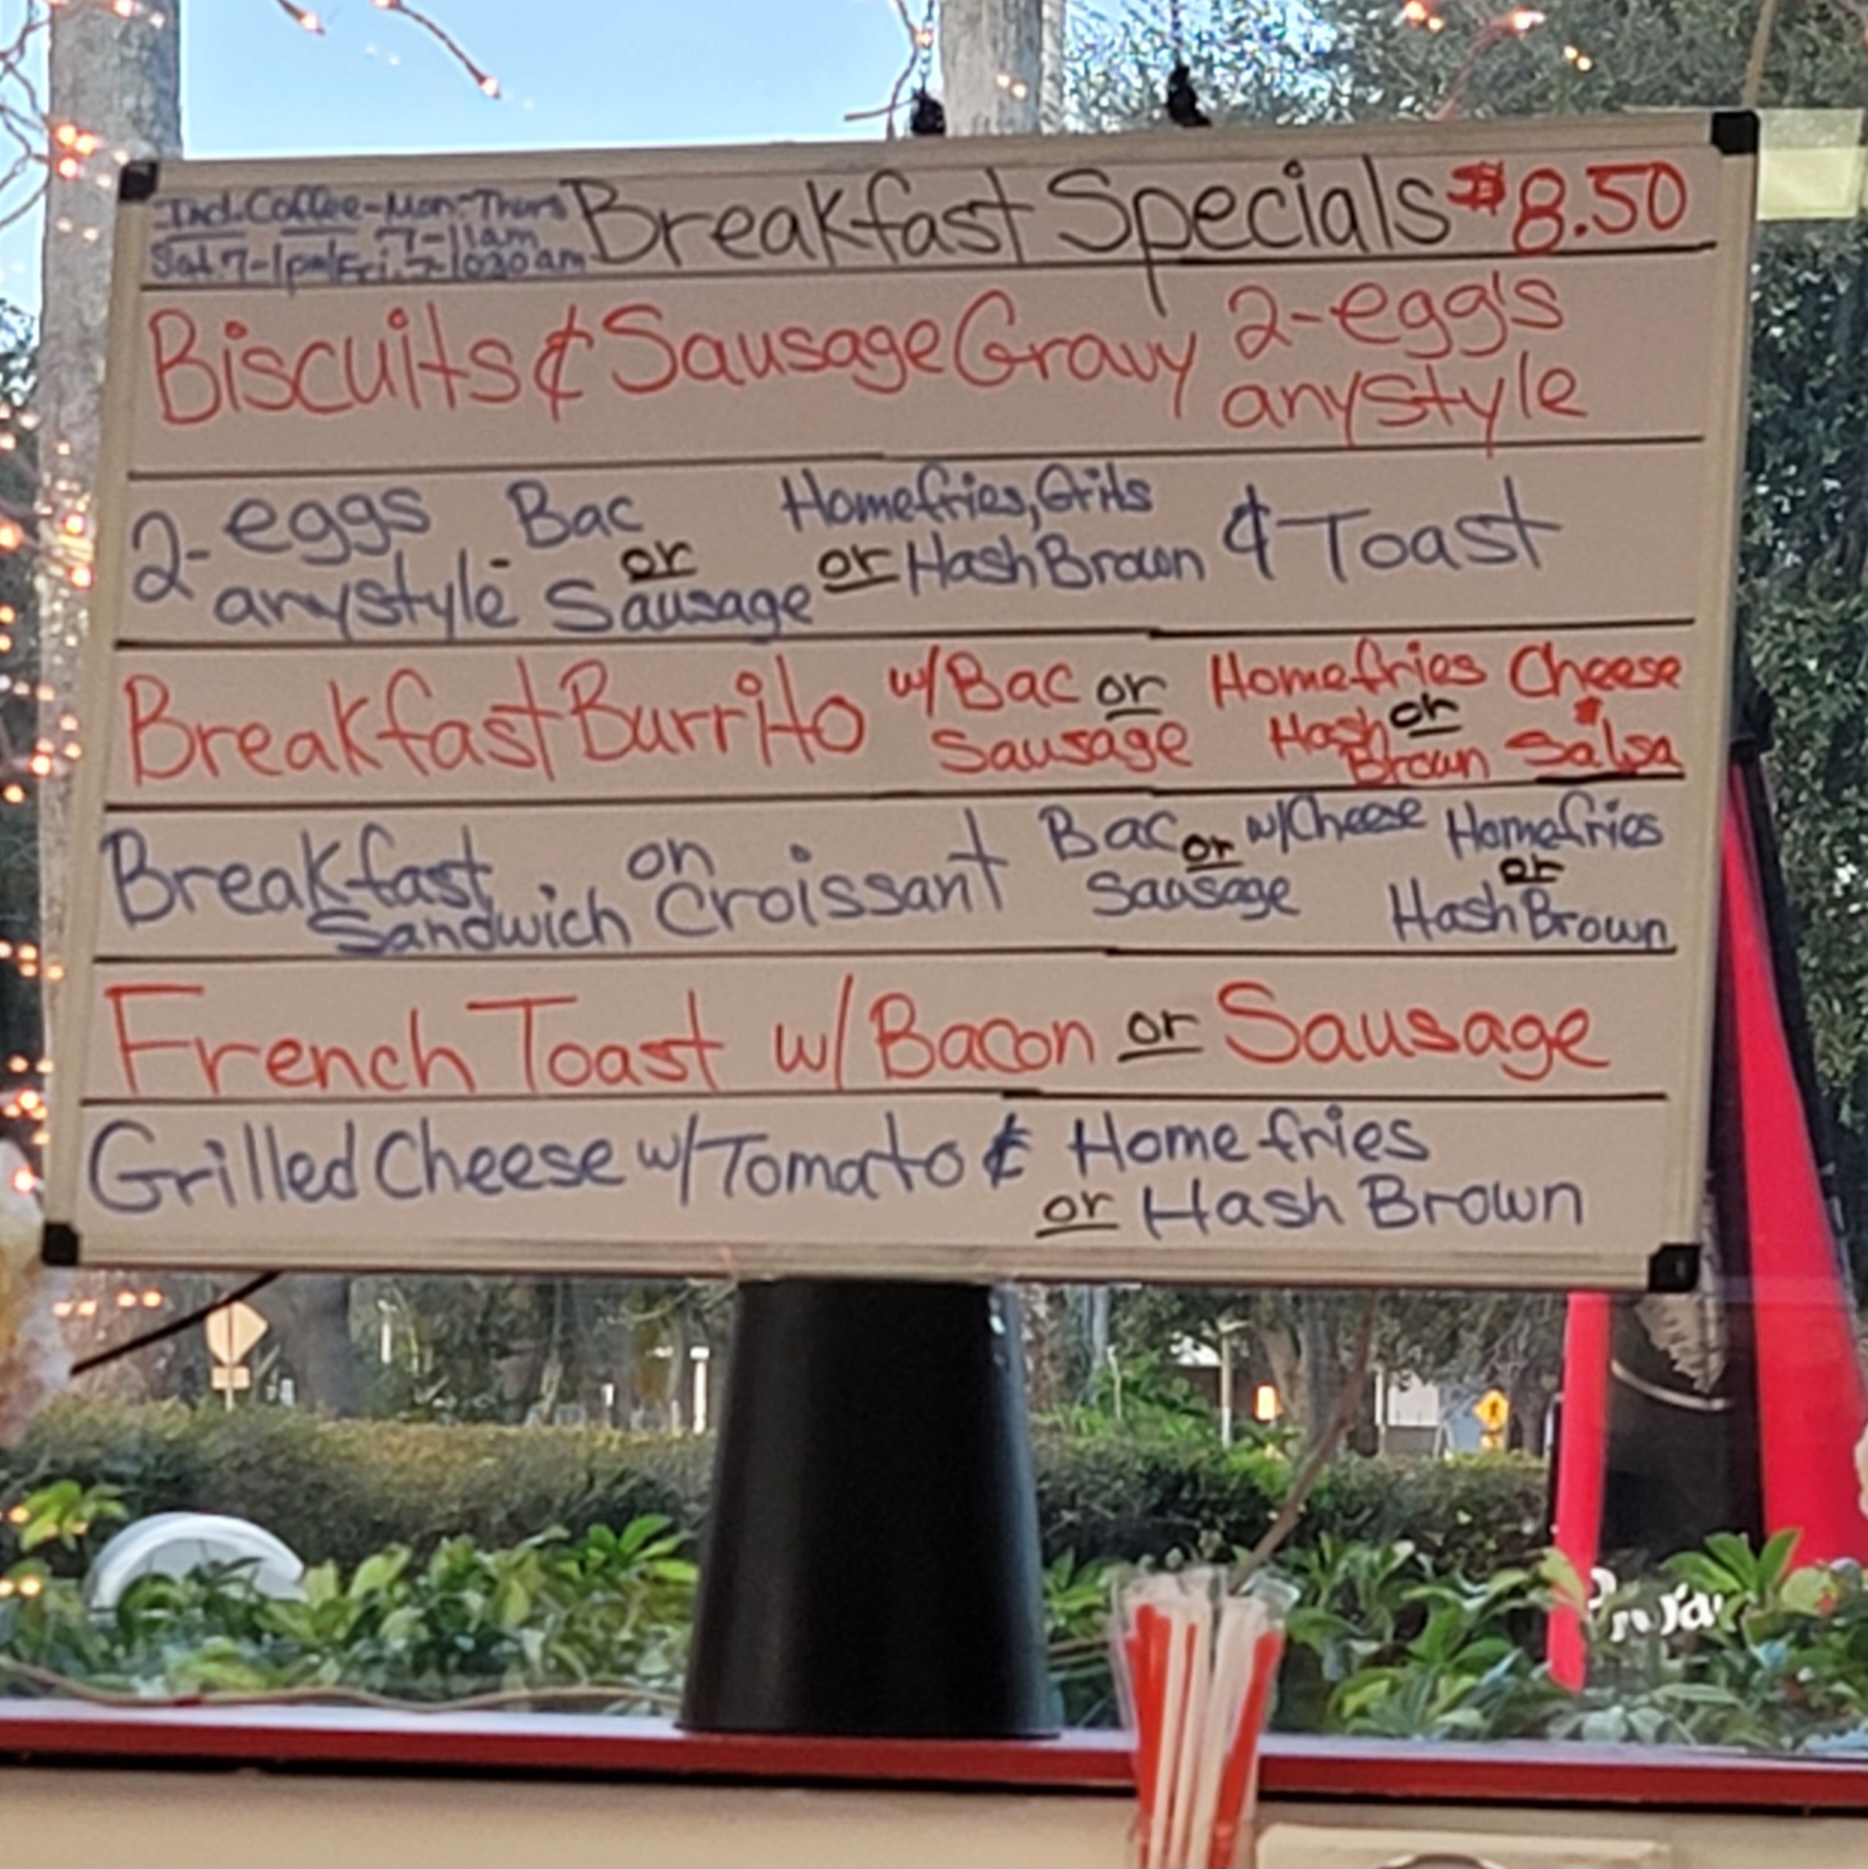 Incl. Coffee-Mon-Thurs
7-11am
Sat 7-1pm/Fri. 7-1030am
Breakfast Specials $8.50
Biscuits & Sausage Gravy 2-egg's
anystyle
2-eggs anystyle - Bac or Sausage Homefries, Grits or Hash Brown & Toast
Breakfast Burrito w/Bac or Sausage Homefries or Hash Brown Cheese & Salsa
Breakfast Sandwich on Croissant Bac or Sausage w/Cheese Homefries or Hash Brown
French Toast w/Bacon or Sausage
Grilled Cheese w/Tomato & Home fries
or Hash Brown